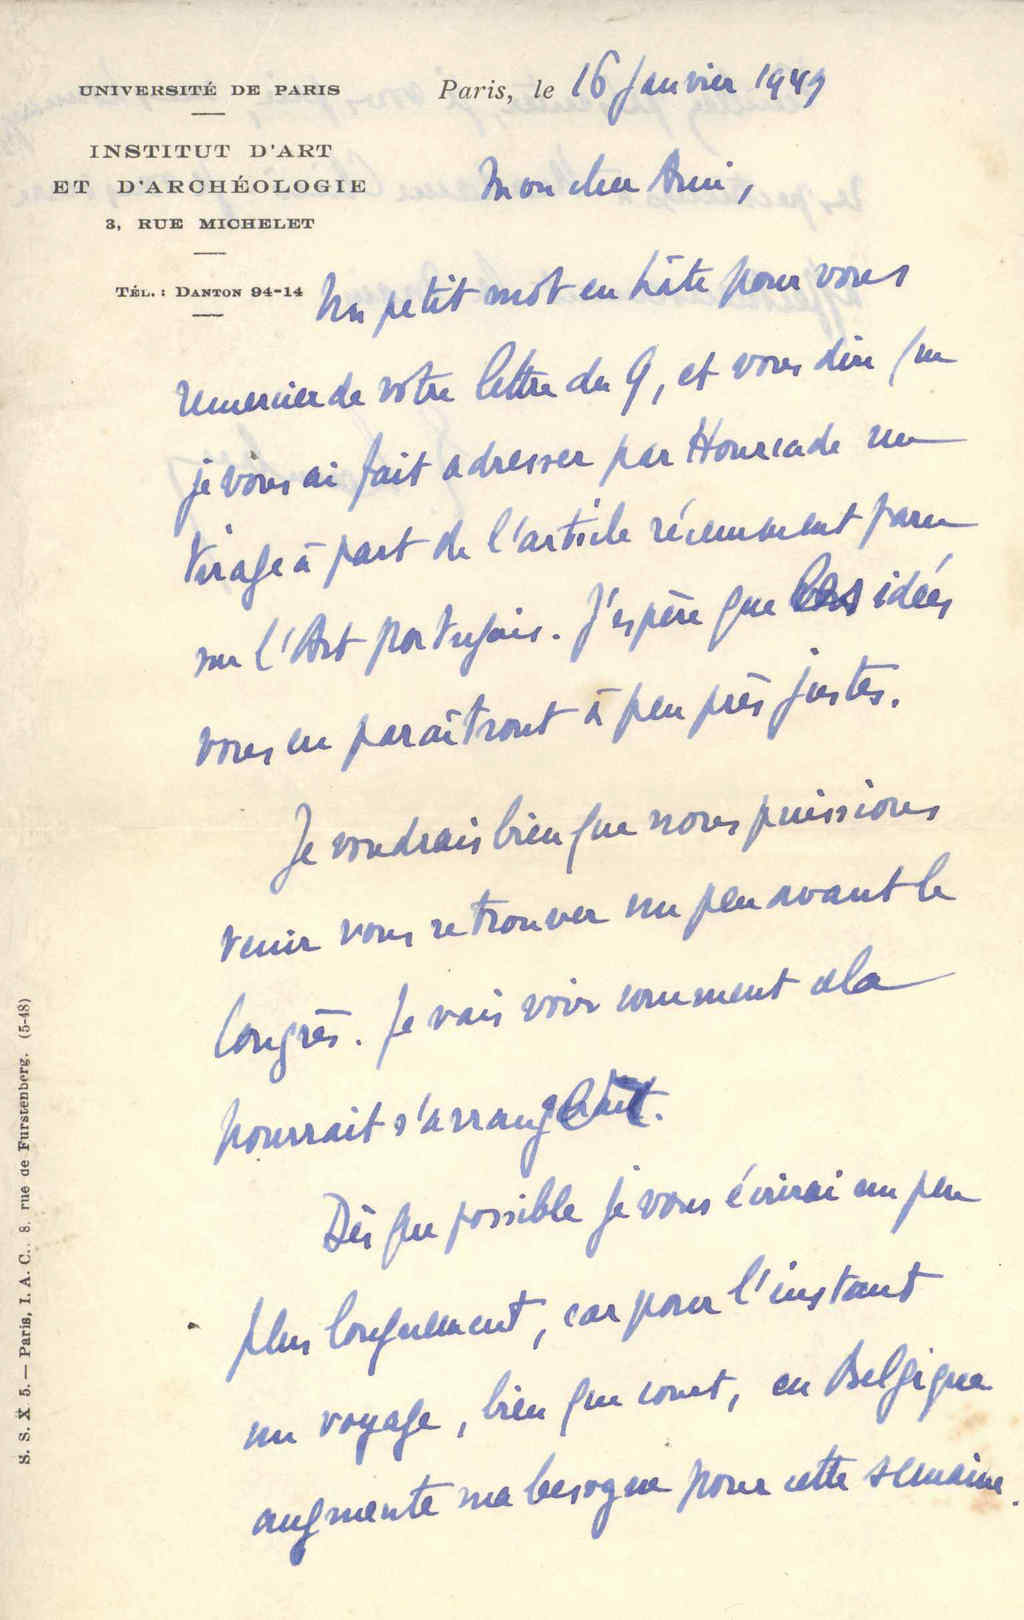 UNIVERSITÉ DE PARIS
INSTITUT D'ART
ET D'ARCHÉOLOGIE
3, RUE MICHELET
TÉL. : DANTON 94-14
Paris, le 16 Janvier 1949
Mon cher Ami,
Un petit mot en hâte pour vous
remercier de votre lettre du 9, et vous dire que
je vous ai fait adresser par Hourcade un
tirage à part de l'article récemment paru
sur l'Art portugais. J'espère que les idées
vous en paraîtront à peu près justes.
Je voudrais bien que nous puissions
venir vous retrouver un peu avant le
Congrès. Je vais voir comment cela
pourrait s'arranger.
Dès que possible je vous écrirai un peu
plus longuement, car pour l'instant
un voyage, bien que court, en Belgique
augmente ma besogne pour cette semaine.
S. S. X 5. — Paris, I. A. C., 8, rue de Furstenberg. (5-48)